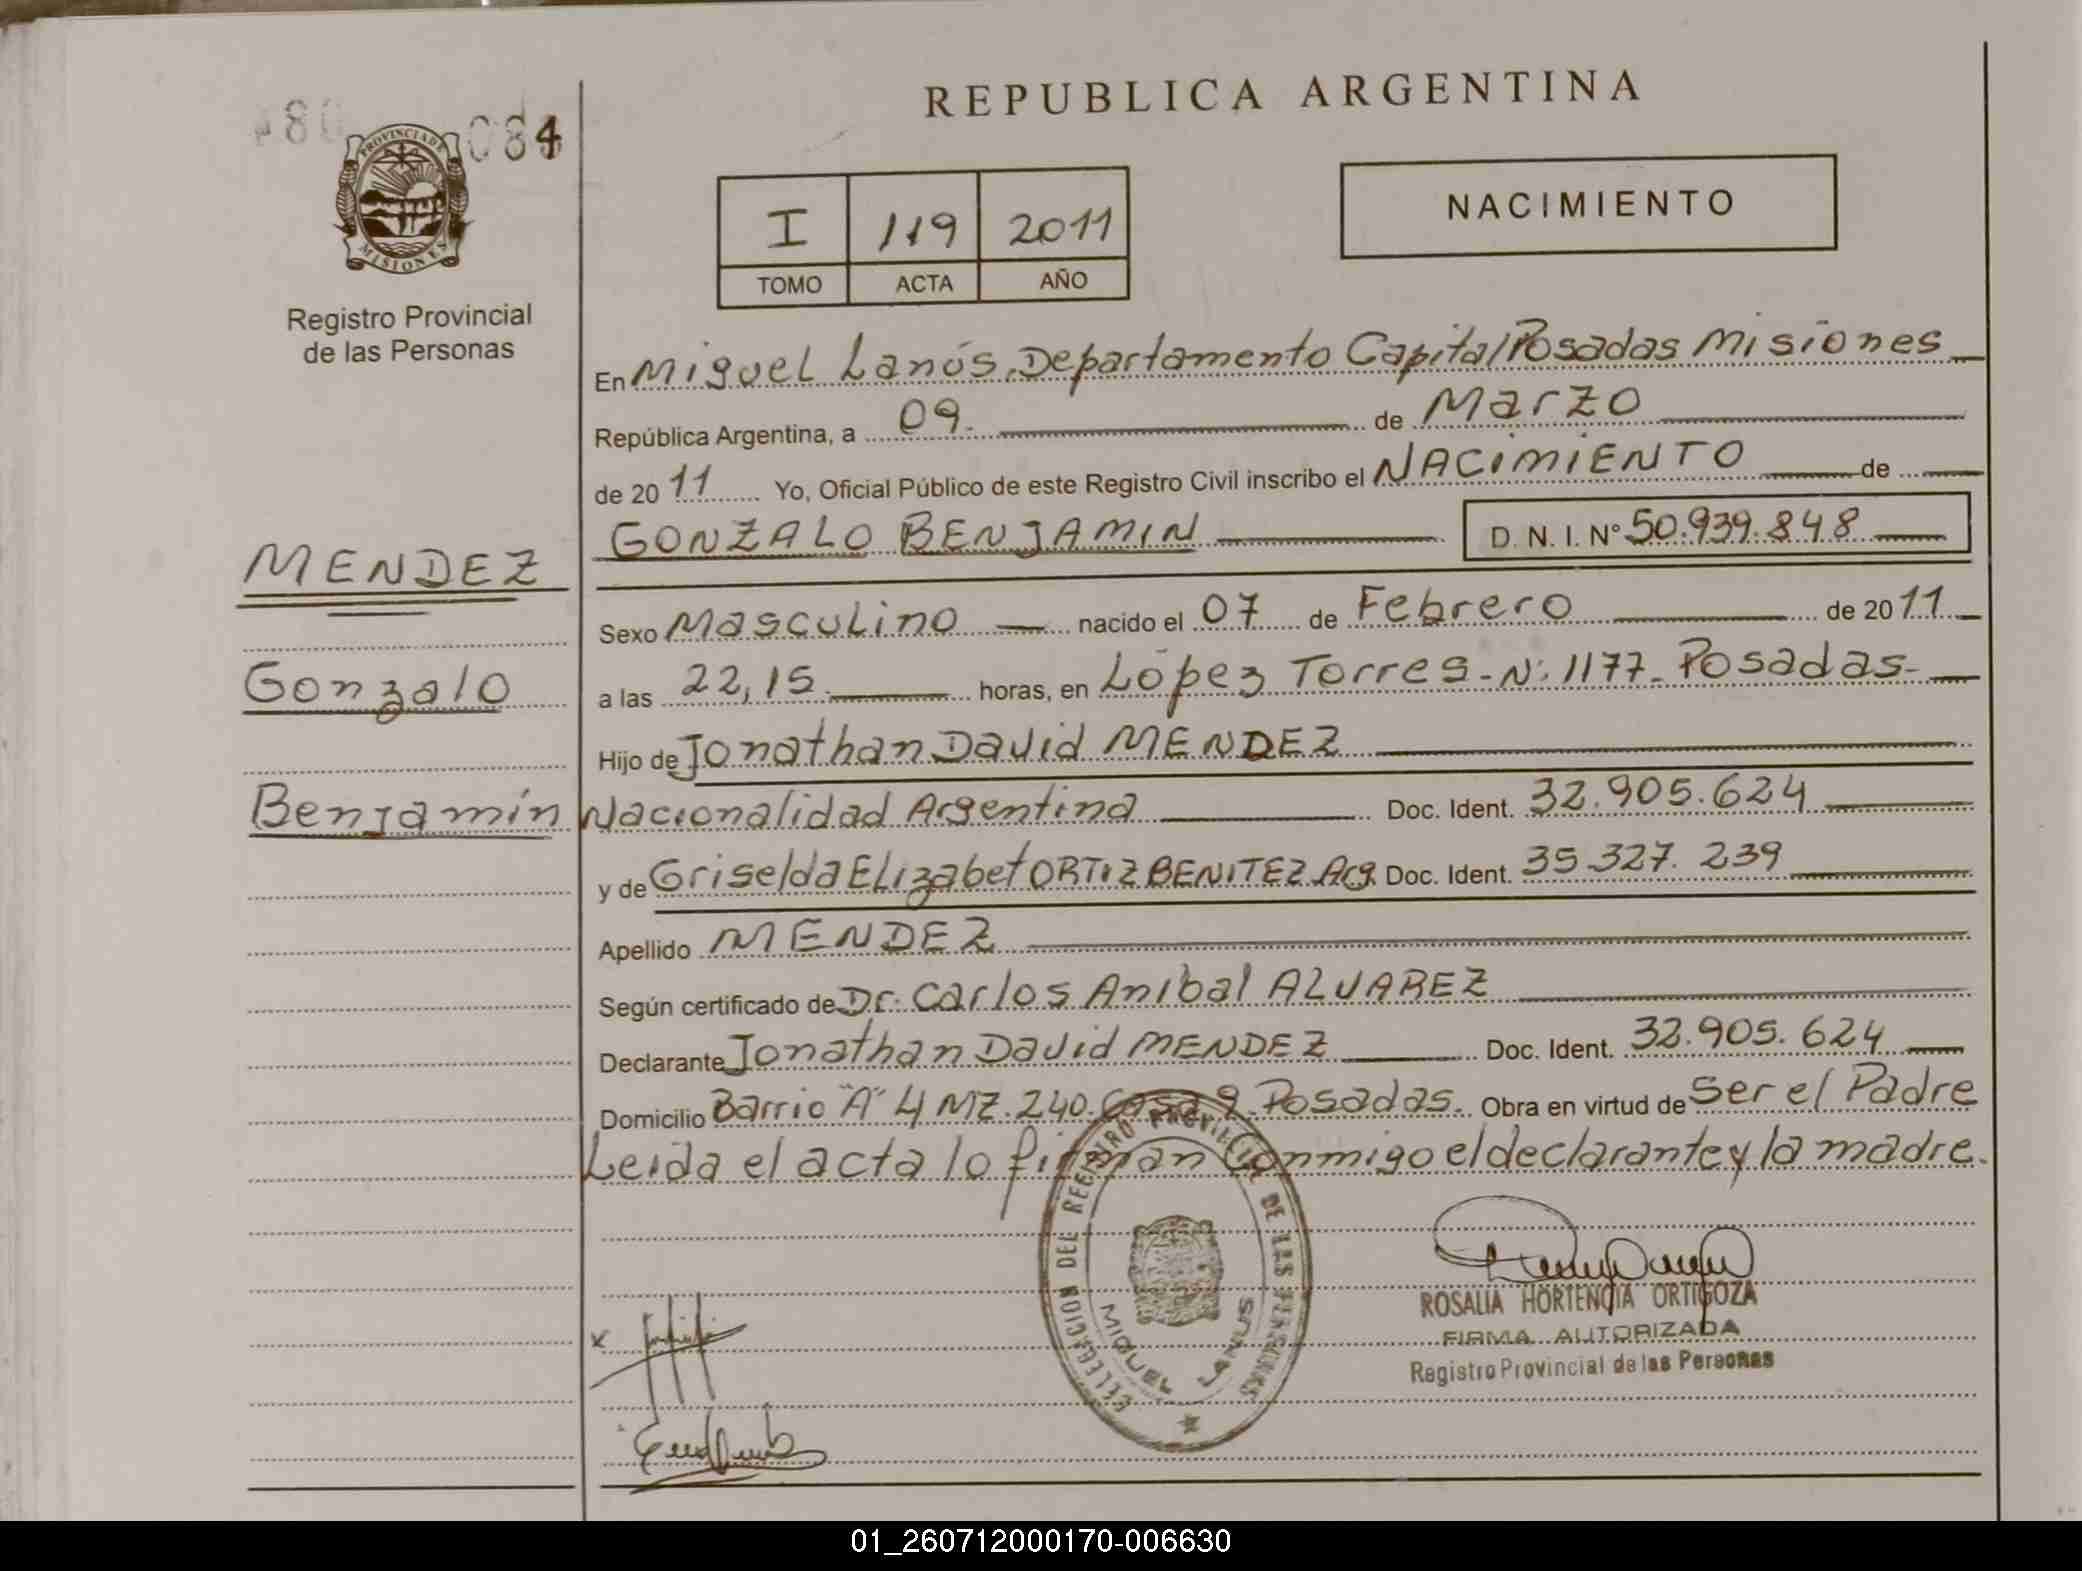 084
PROVINCIA DE
MISIONES
Registro Provincial
de las Personas
MENDEZ
Gonzalo
Benjamín
REPUBLICA ARGENTINA
I 119 2011
TOMO ACTA AÑO
NACIMIENTO
En Miguel Lanús, Departamento Capital Posadas Misiones
República Argentina, a 09. de Marzo
de 2011 Yo, Oficial Público de este Registro Civil inscribo el NACIMIENTO de
GONZALO BENJAMIN D. N. I. Nº 50.939.848
Sexo Masculino nacido el 07 de Febrero de 2011
a las 22,15 horas, en López Torres - N: 1177 - Posadas-
Hijo de Jonathan David MENDEZ
Nacionalidad Argentina Doc. Ident. 32.905.624
y de Griselda Elizabet ORTIZ BENITEZ Arg. Doc. Ident. 35.327.239
Apellido MENDEZ
Según certificado de Dr. Carlos Anibal ALVAREZ
Declarante Jonathan David MENDEZ Doc. Ident. 32.905.624
Domicilio Barrio "A" 4 MZ. 240. Casa 9. Posadas. Obra en virtud de Ser el Padre
Leida el acta lo firman conmigo el declarante y la madre.
DELEGACION DEL REGISTRO PROVINCIAL DE LAS PERSONAS
MIGUEL LANUS
ROSALIA HORTENCIA ORTIGOZA
FIRMA AUTORIZADA
Registro Provincial de las Personas
01_260712000170-006630